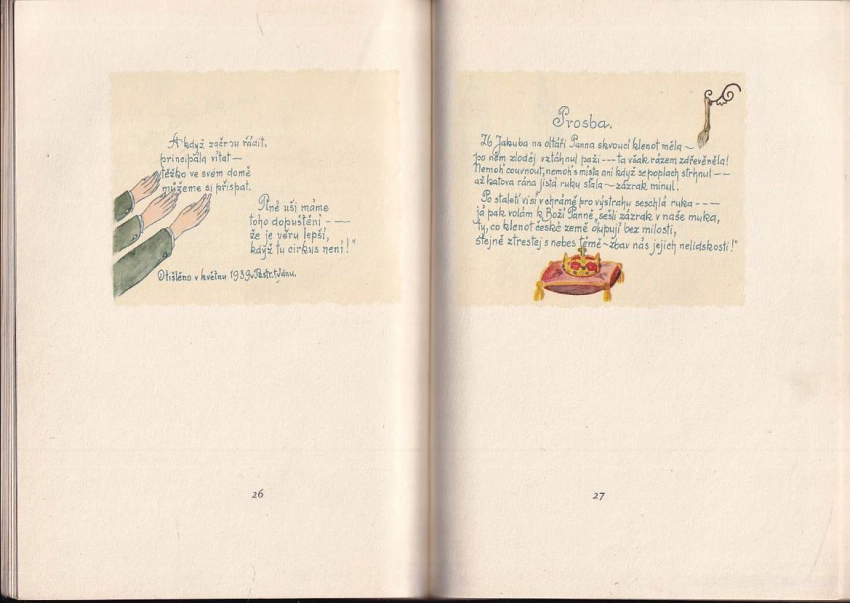 A když začnou řádit,
principála vítat —
těžko ve svém domě
můžeme si přispat.
Plné uši máme
toho dopuštění — —
že je věru lepší,
když tu cirkus není!"
Otištěno v květnu 1939 v
26
Prosba.
U Jakuba na oltáři Panna skvoucí klenot měla ~
po něm zloděj vztáhnul paži --- ta však rázem zdřevěněla!
Nemoh couvnout, nemoh s místa ani když se poplach strhnul --
až katova rána jistá ruku sťala ~ zázrak minul.
Po staletí visí v chrámě pro výstrahu seschlá ruka ---
já pak volám k Boží Panně, sešli zázrak v naše muka,
ty, co klenot české země olupují bez milosti,
stejně ztrestej s nebes témě ~ zbav nás jejich nelidskosti!"
27